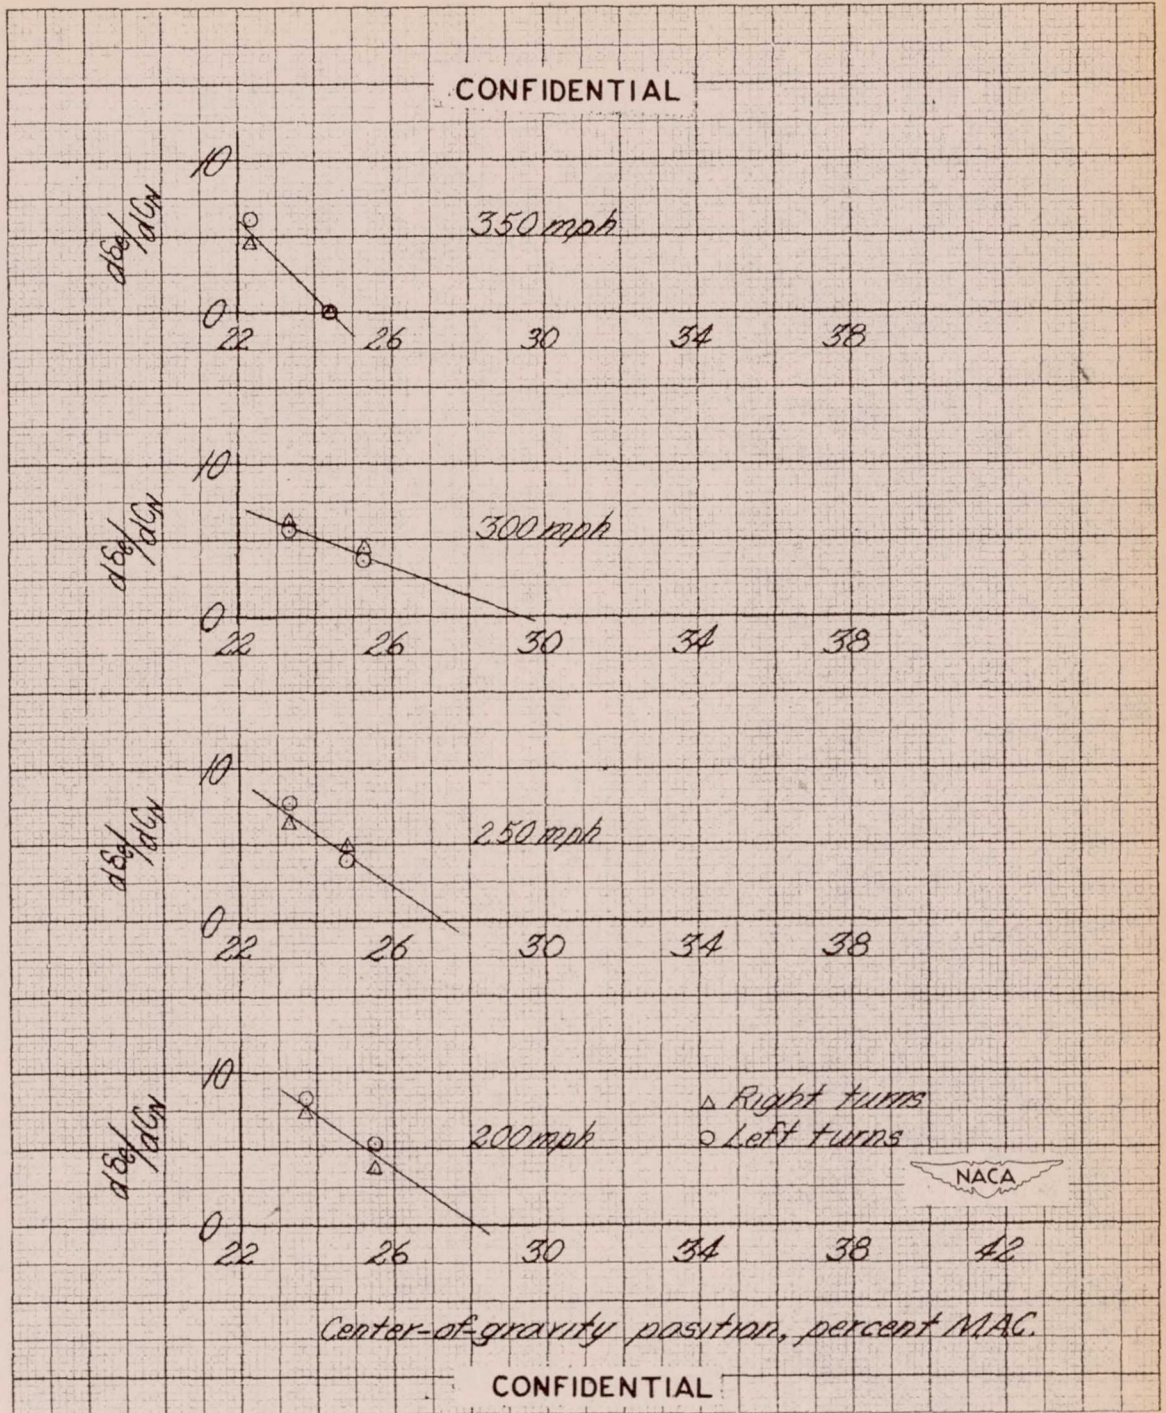 CONFIDENTIAL
10
dδe/dCN
350 mph
0
22 26 30 34 38
10
dδe/dCN
300 mph
0
22 26 30 34 38
10
dδe/dCN
250 mph
0
22 26 30 34 38
10
dδe/dCN
△ Right turns
200 mph
○ Left turns
NACA
0
22 26 30 34 38 42
Center-of-gravity position, percent M.A.C.
CONFIDENTIAL